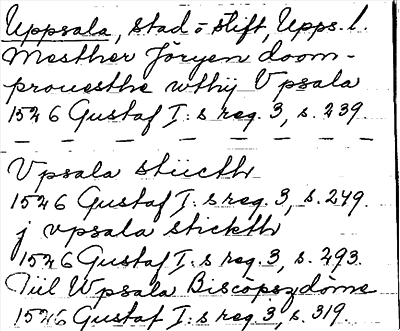 Uppsala, stad o stift, Upps. l.
Mesther Jöryen doom-
prouesthe wthij Vpsala
1526 Gustaf I:s reg. 3, s. 239.
Vpsala stiicth
1526 Gustaf I:s reg. 3, s. 249.
j vpsala stickth
1526 Gustaf I:s reg. 3, s. 293.
Till Wpsala Biscopszdöme
1526 Gustaf I:s reg. 3, s. 319.